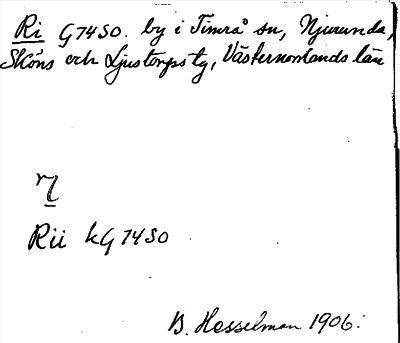 Ri G74SO. by i Timrå sn, Njurunda,
Sköns och Ljustorps tg, Västernorrlands län
Rii kG74SO
B. Hesselman 1906.